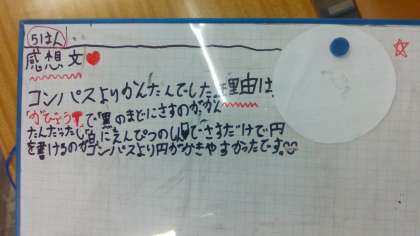 5はん
感想文
コンパスよりかんたんでした。理由は
「がびょう」で黒のまとにさすのがかん
たんだったし、白にえんぴつのしんでさすだけで円
を書けるのがコンパスより円がかきやすかったです。